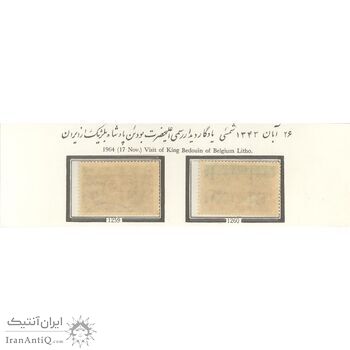 ۲۶ آبان ۱۳۴۳ شمسی یادگار دیدار رسمی اعلیحضرت بودئن پادشاه بلژیک از ایران
1964 (17 Nov.) Visit of King Bedouin of Belgium Litho.
1259 1260
ایران آنتیک
IranAntiQ.com